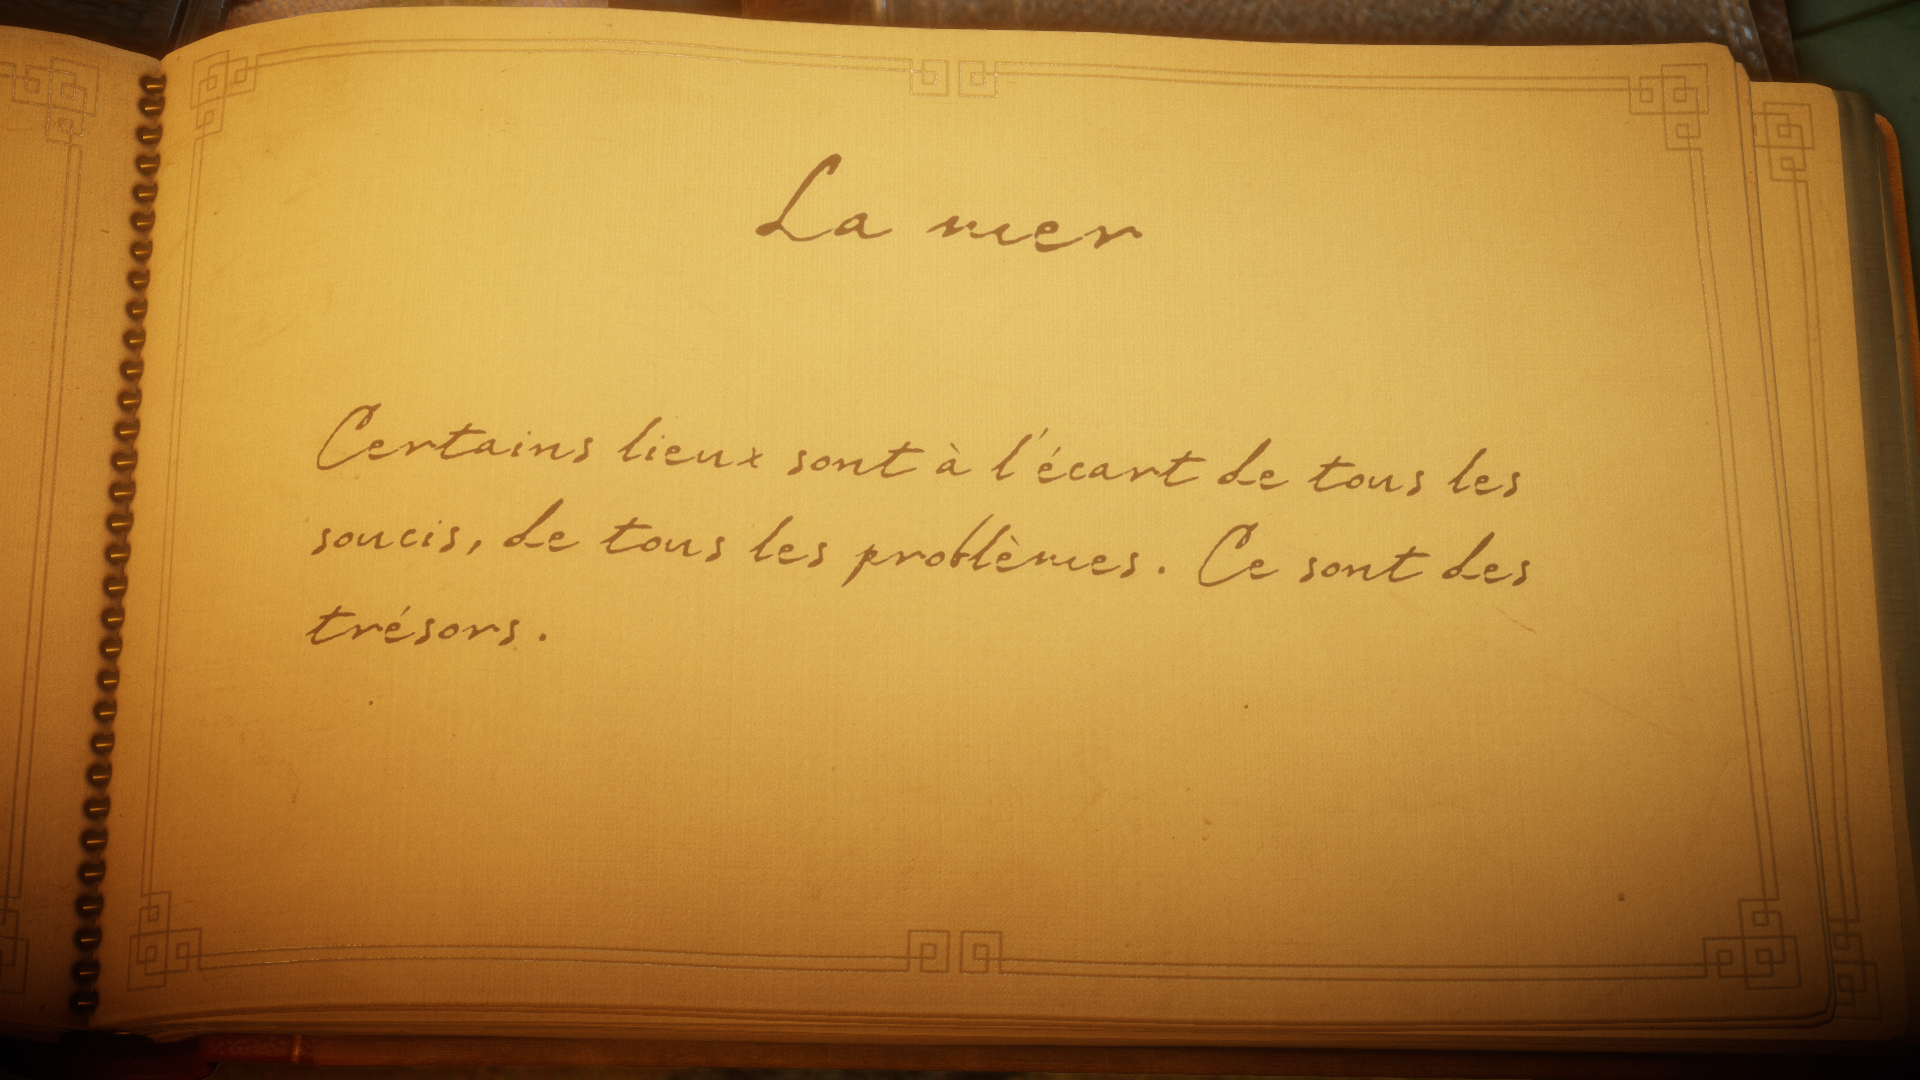 La mer
Certains lieux sont à l'écart de tous les
soucis, de tous les problèmes. Ce sont des
trésors.